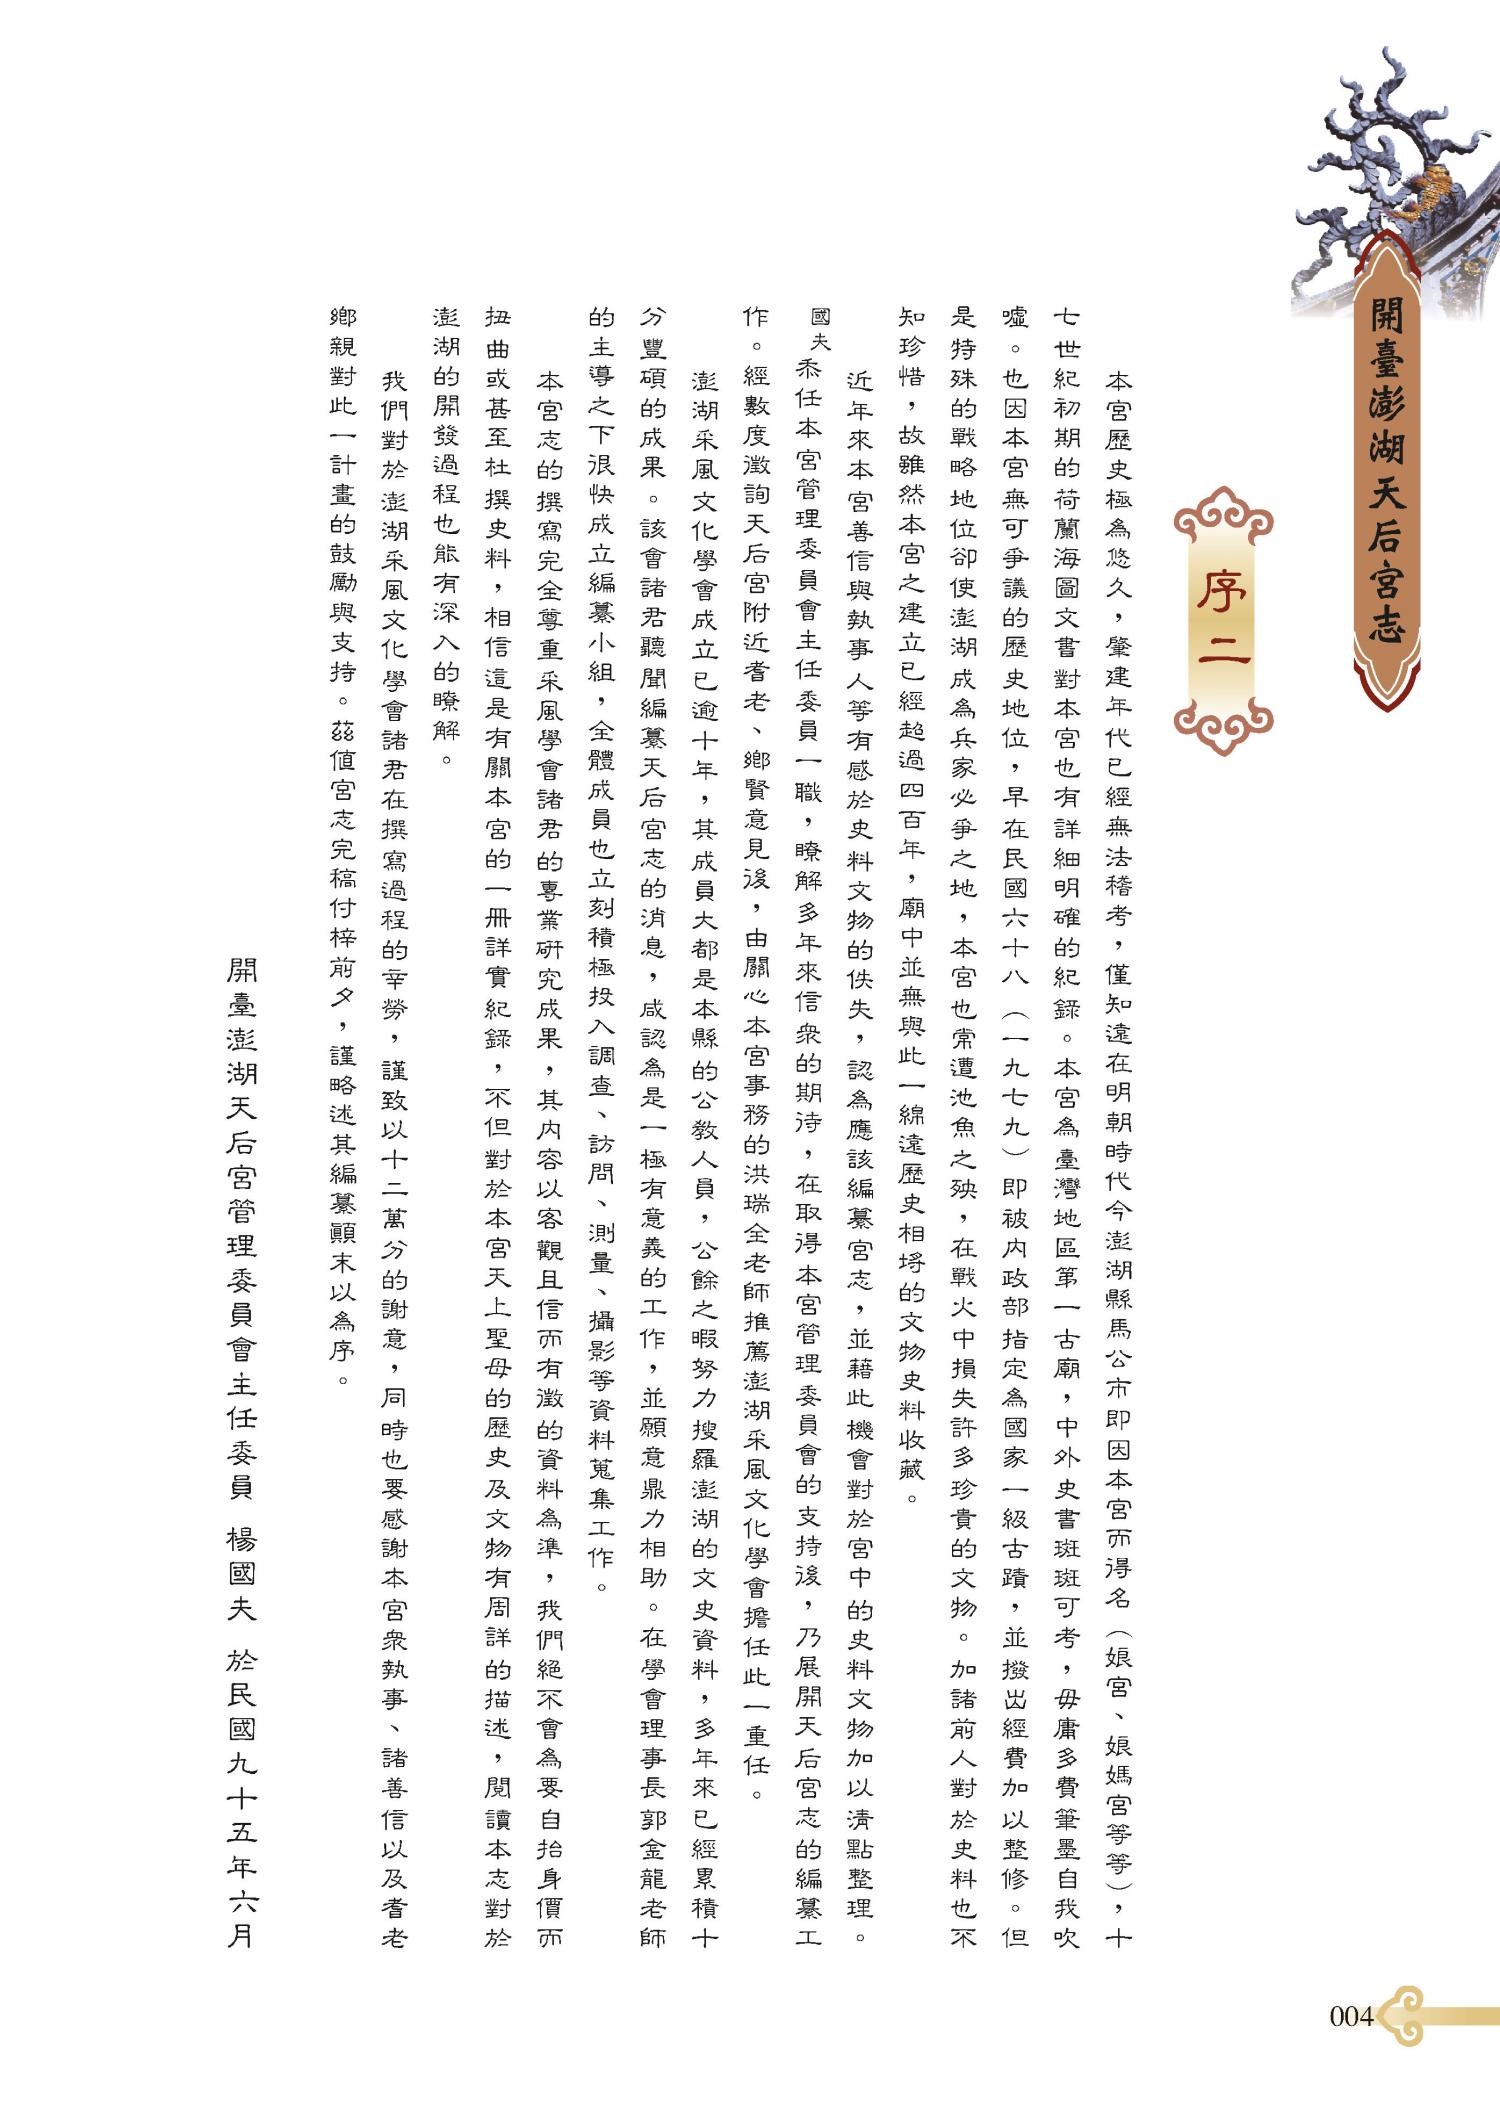 開臺澎湖天后宮志
序二
本宮歷史極為悠久，肇建年代已經無法稽考，僅知遠在明朝時代今澎湖縣馬公市即因本宮而得名（娘宮、娘媽宮等等），十
七世紀初期的荷蘭海圖文書對本宮也有詳細明確的紀錄。本宮為臺灣地區第一古廟，中外史書斑斑可考，毋庸多費筆墨自我吹
噓。也因本宮無可爭議的歷史地位，早在民國六十八（一九七九）即被內政部指定為國家一級古蹟，並撥出經費加以整修。但
是特殊的戰略地位卻使澎湖成為兵家必爭之地，本宮也常遭池魚之殃，在戰火中損失許多珍貴的文物。加諸前人對於史料也不
知珍惜，故雖然本宮之建立已經超過四百年，廟中並無與此一綿遠歷史相埒的文物史料收藏。
近年來本宮善信與執事人等有感於史料文物的佚失，認為應該編纂宮志，並藉此機會對於宮中的史料文物加以清點整理。
國夫忝任本宮管理委員會主任委員一職，瞭解多年來信眾的期待，在取得本宮管理委員會的支持後，乃展開天后宮志的編纂工
作。經數度徵詢天后宮附近耆老、鄉賢意見後，由關心本宮事務的洪瑞全老師推薦澎湖采風文化學會擔任此一重任。
澎湖采風文化學會成立已逾十年，其成員大都是本縣的公教人員，公餘之暇努力搜羅澎湖的文史資料，多年來已經累積十
分豐碩的成果。該會諸君聽聞編纂天后宮志的消息，咸認為是一極有意義的工作，並願意鼎力相助。在學會理事長郭金龍老師
的主導之下很快成立編纂小組，全體成員也立刻積極投入調查、訪問、測量、攝影等資料蒐集工作。
本宮志的撰寫完全尊重采風學會諸君的專業研究成果，其內容以客觀且信而有徵的資料為準，我們絕不會為要自抬身價而
扭曲或甚至杜撰史料，相信這是有關本宮的一冊詳實紀錄，不但對於本宮天上聖母的歷史及文物有周詳的描述，閱讀本志對於
澎湖的開發過程也能有深入的瞭解。
我們對於澎湖采風文化學會諸君在撰寫過程的辛勞，謹致以十二萬分的謝意，同時也要感謝本宮眾執事、諸善信以及耆老
鄉親對此一計畫的鼓勵與支持。茲值宮志完稿付梓前夕，謹略述其編纂顛末以為序。
開臺澎湖天后宮管理委員會主任委員 楊國夫 於民國九十五年六月
004